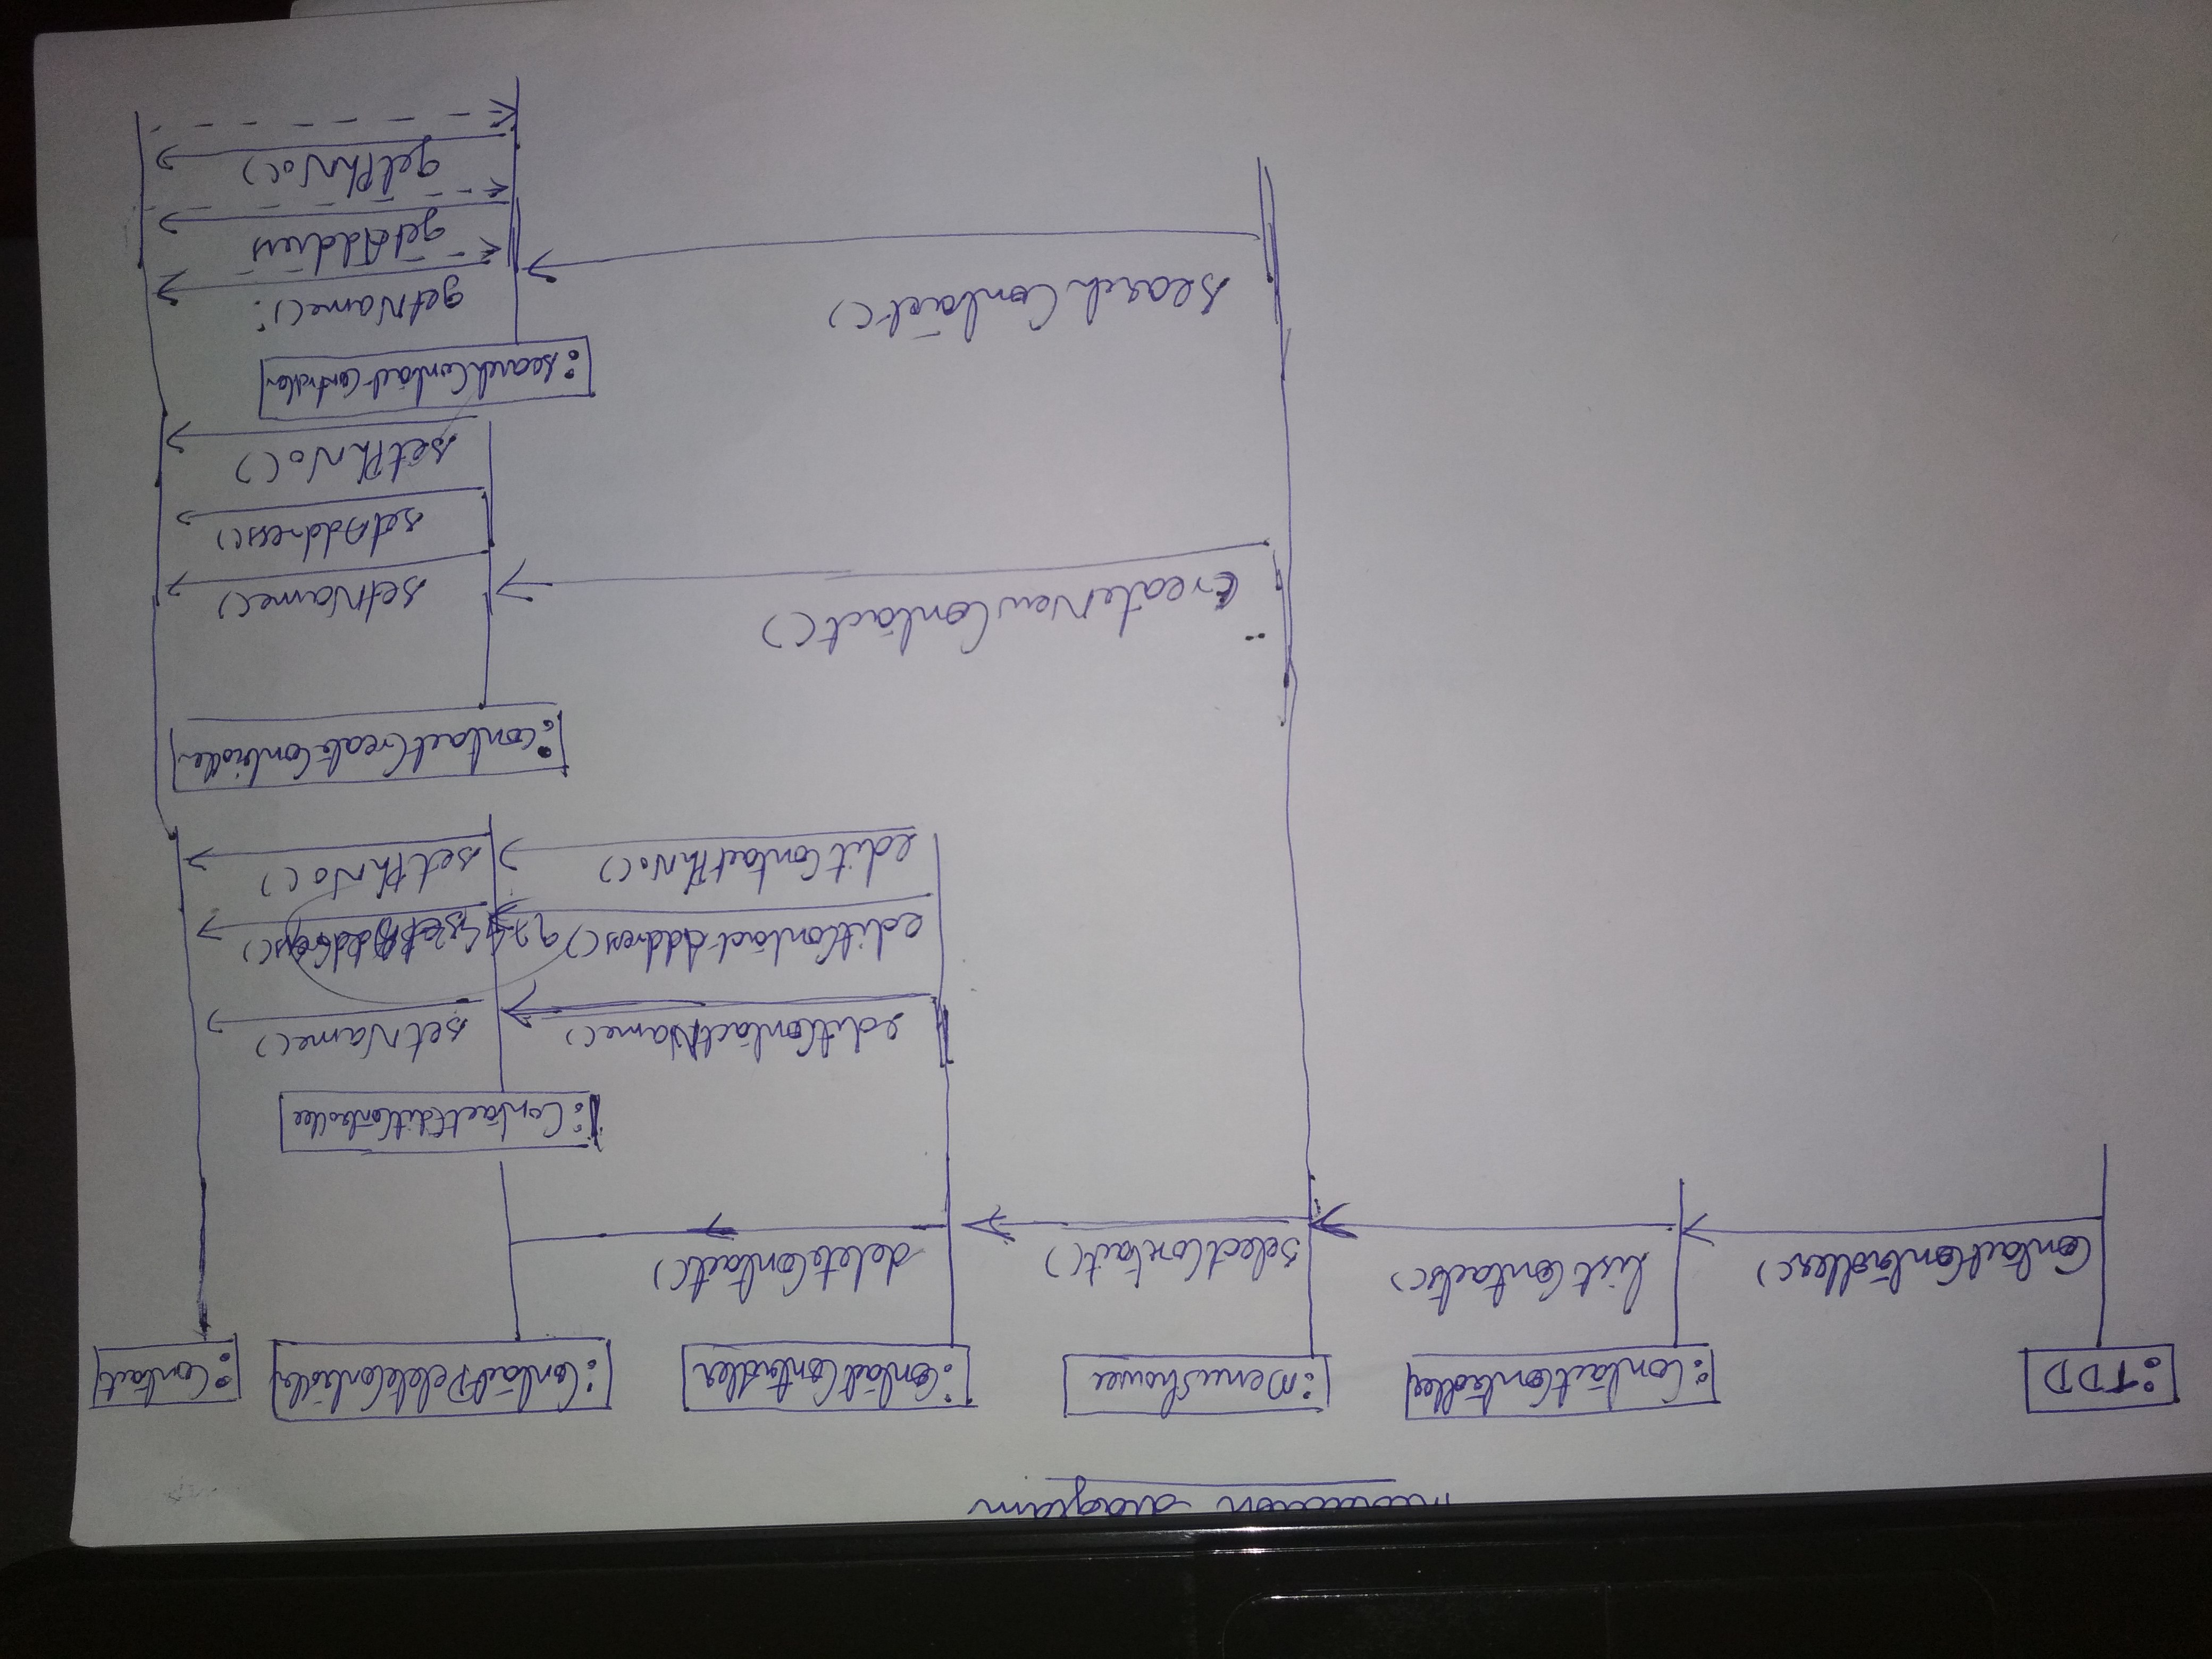 diagram
:TDD
:ContactController
:MenuShower
:ContactController
:ContactDeleteController
:Contact
ContactController()
listContacts()
selectContact()
deleteContact()
:ContactEditController
editContactName()
setName()
editContactAddress()
setAddress()
editContactPhNo()
setPhNo()
:contactCreateController
createNewContact()
setName()
setAddress()
setPhNo()
:searchContactController
searchContact()
getName():
getAddress
getPhNo()